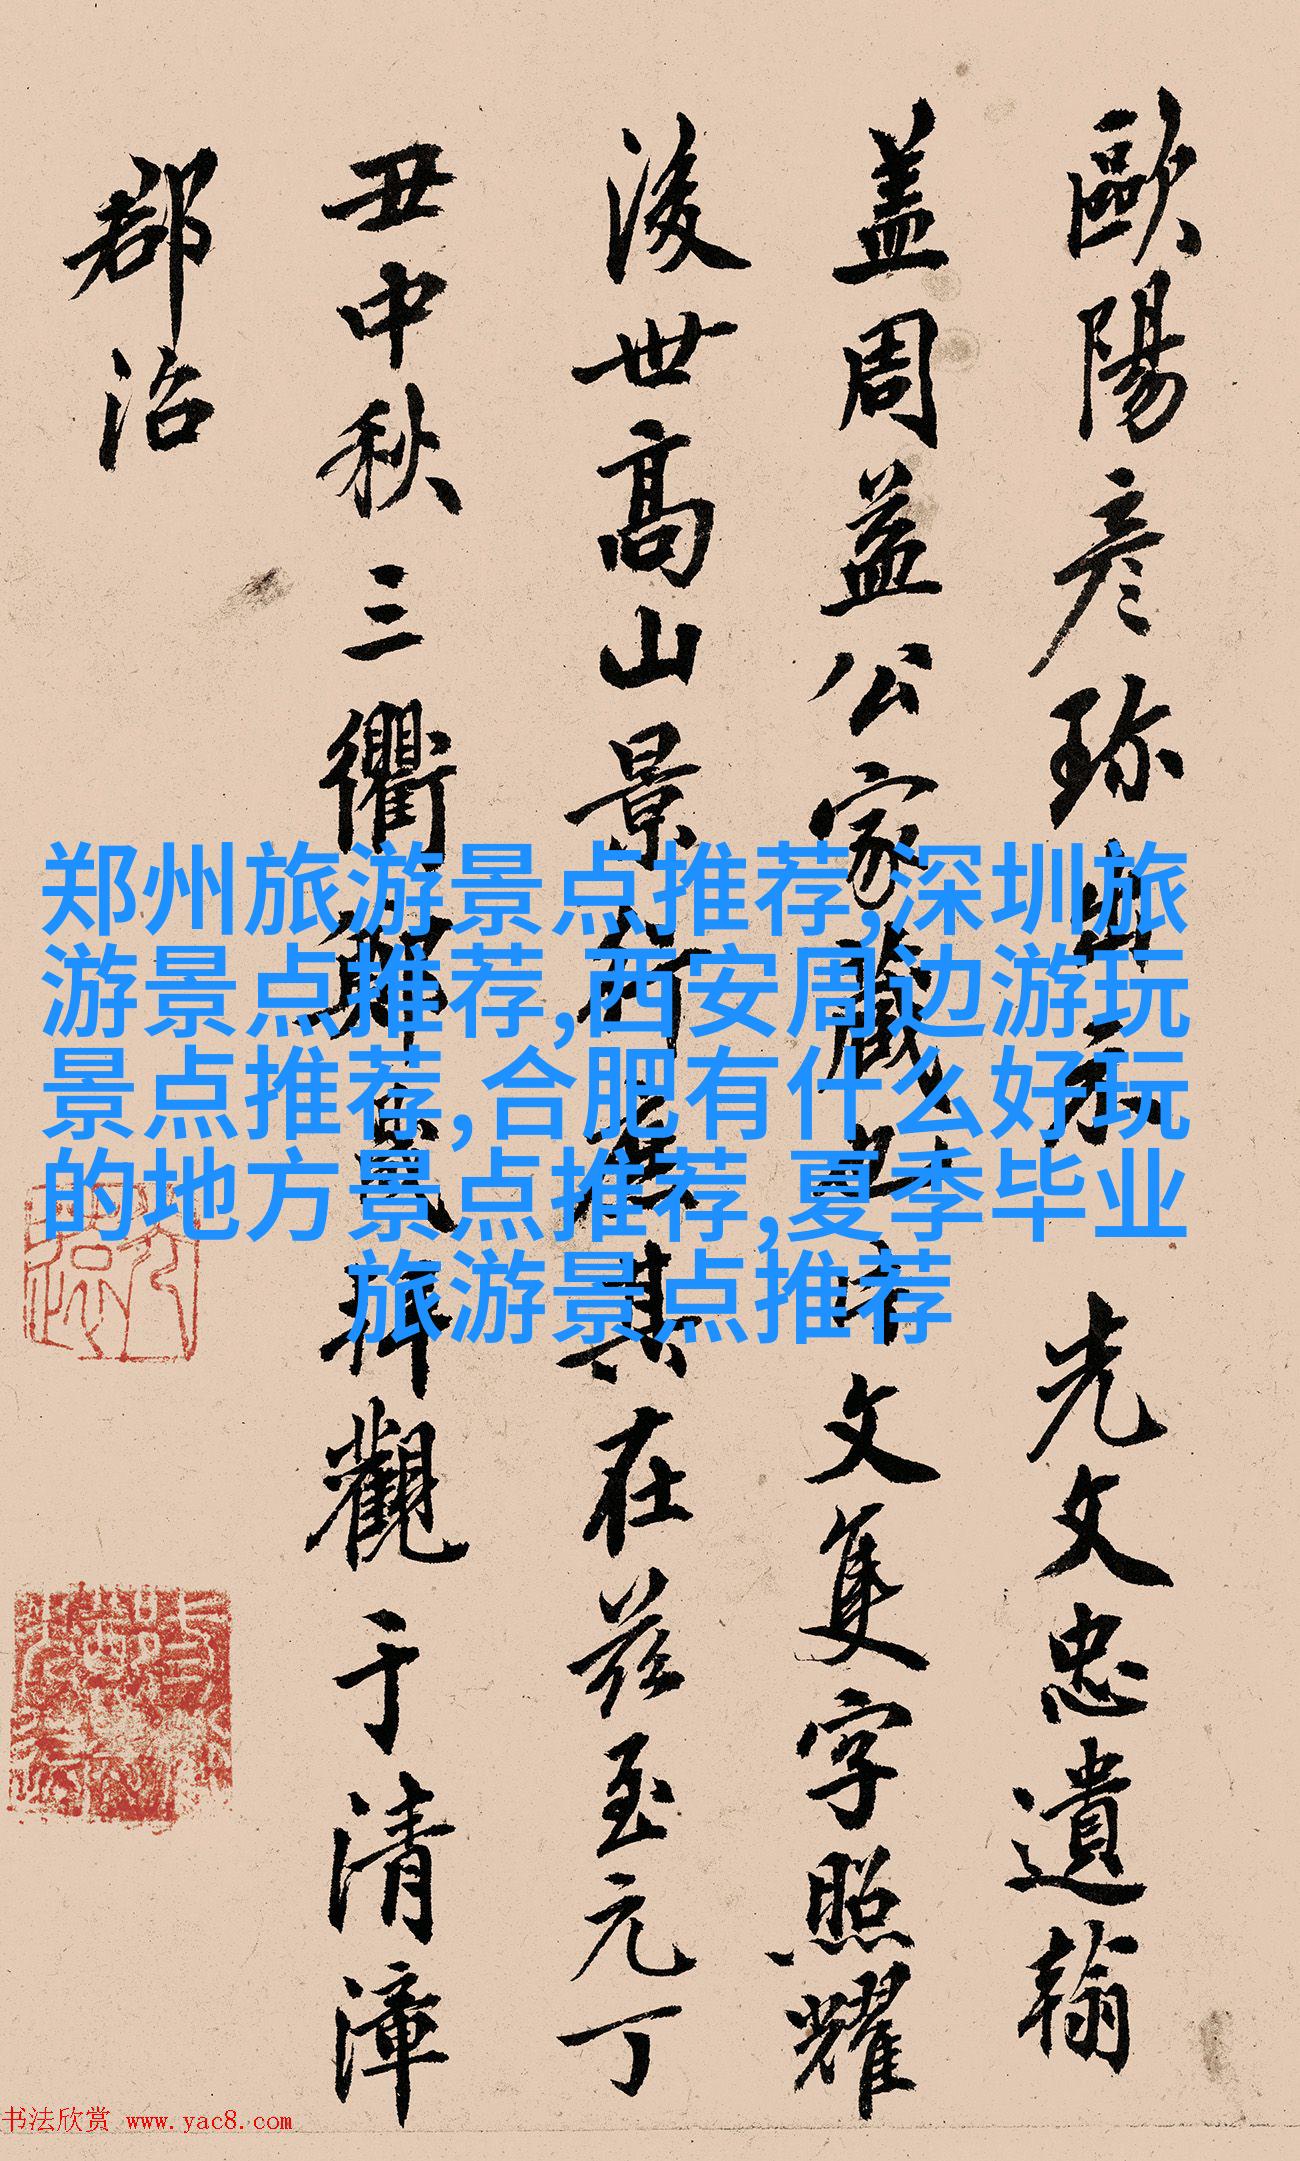 歐陽彦珎出示先文忠遺翰
盖周益公家藏也片文隻字照耀
後世高山景行其在兹至元丁
丑中秋三衢拜觀于清漳
郡治
郑州旅游景点推荐,深圳旅
游景点推荐,西安周边游玩
景点推荐,合肥有什么好玩
的地方景点推荐,夏季毕业
旅游景点推荐
书法欣赏 www.yac8.com